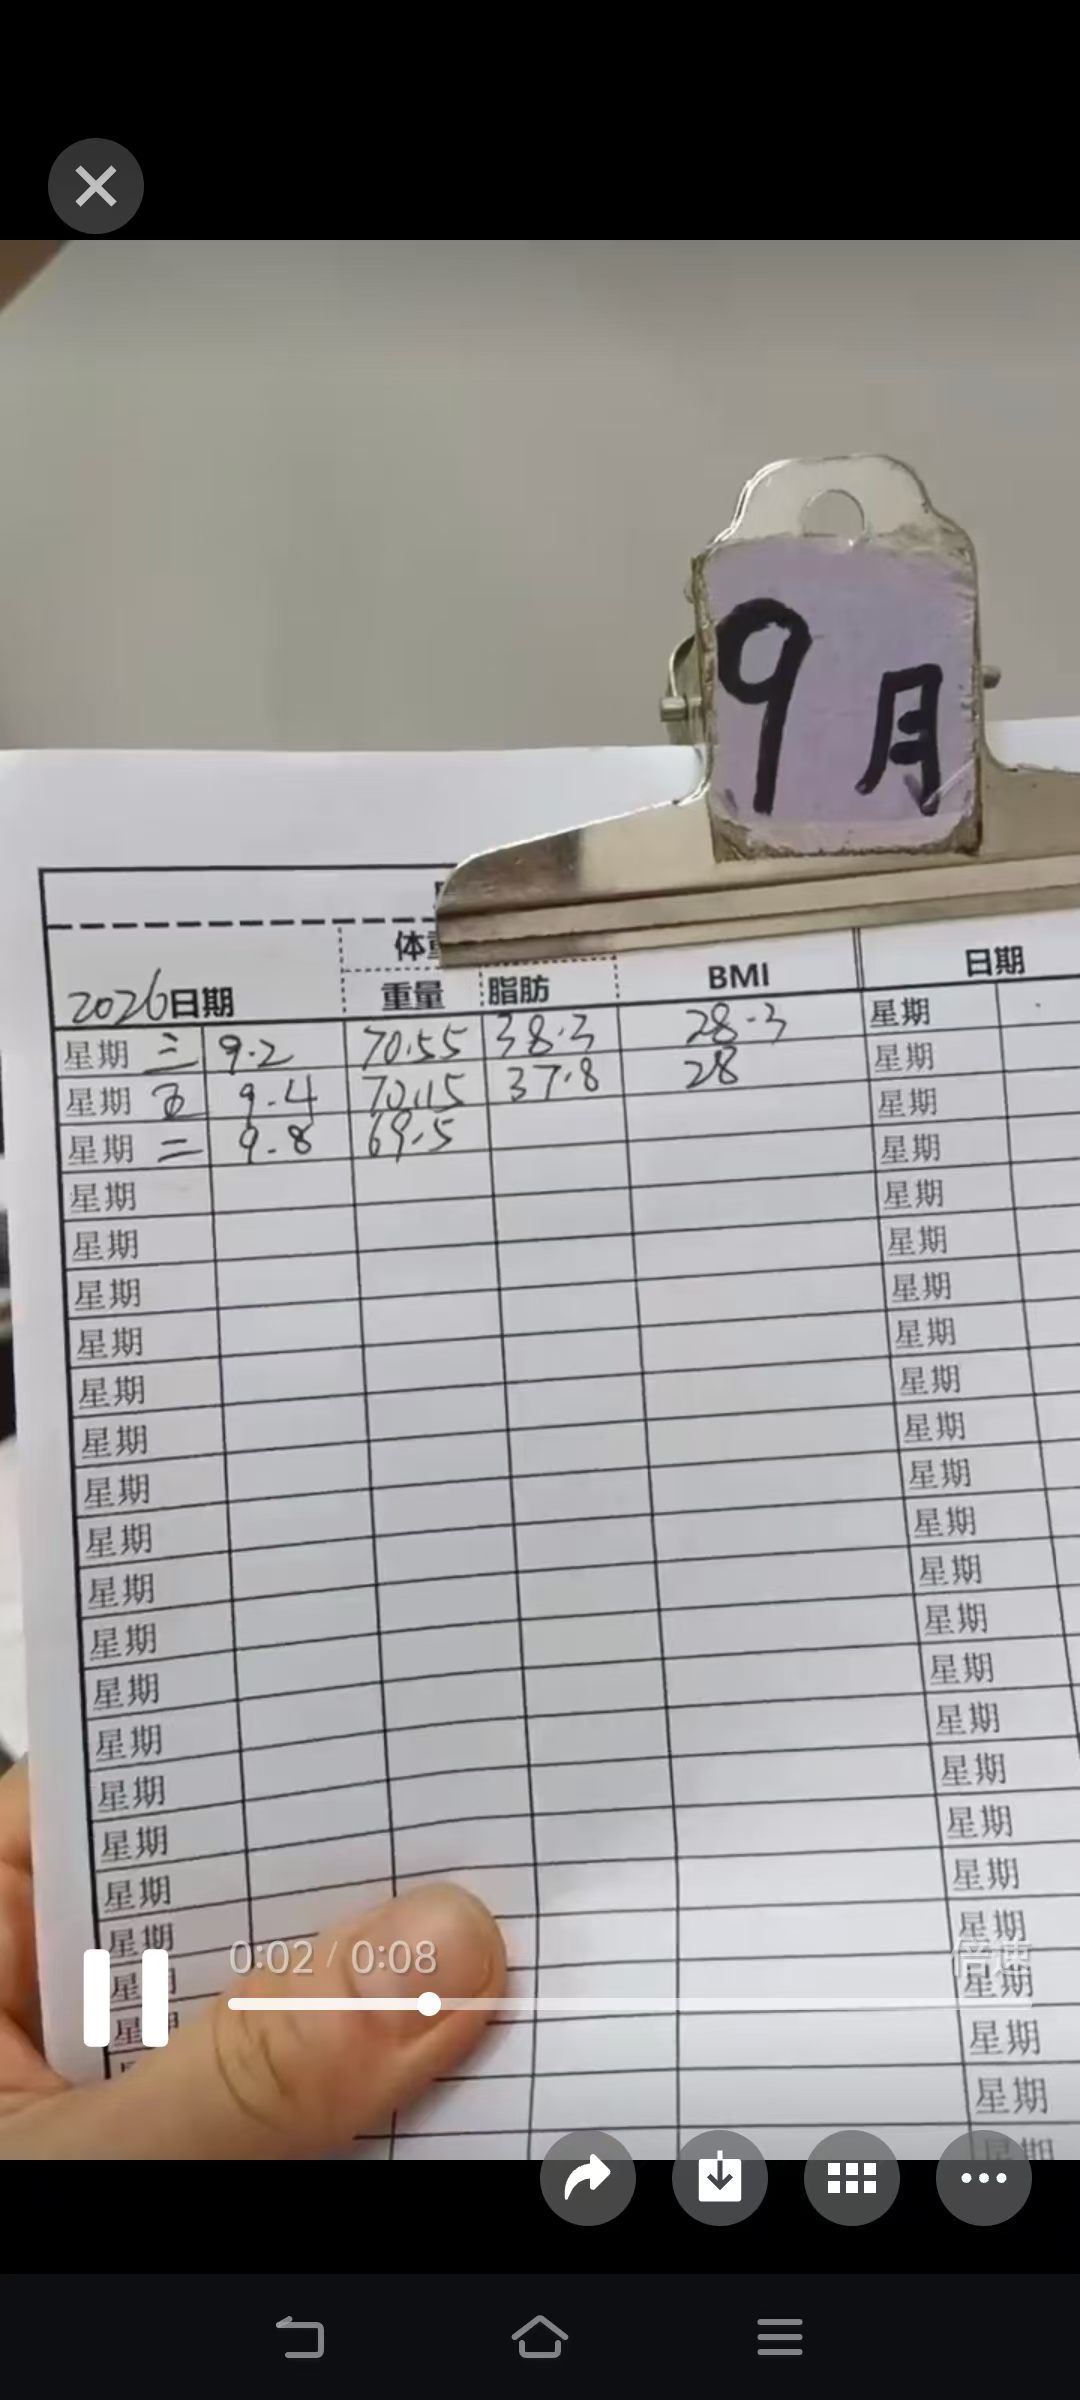 9月
体重
2026日期 重量 脂肪 BMI 日期
星期 三 9.2 70.55 38.3 28.3 星期
星期 五 9.4 70.15 37.8 28 星期
星期 二 9.8 69.5 星期
星期 星期
星期 星期
星期 星期
星期 星期
星期 星期
星期 星期
星期 星期
星期 星期
星期 星期
星期 星期
星期 星期
星期 星期
星期 星期
星期 星期
星期 星期
星期 星期
星期 星期
0:02 / 0:08 倍速
星期 星期
星期
星期
星期